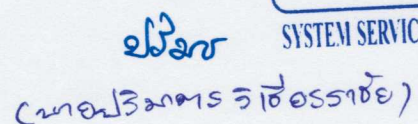 SYSTEM SERVIC
(นายปริมาตร วิเชียรราชัย)